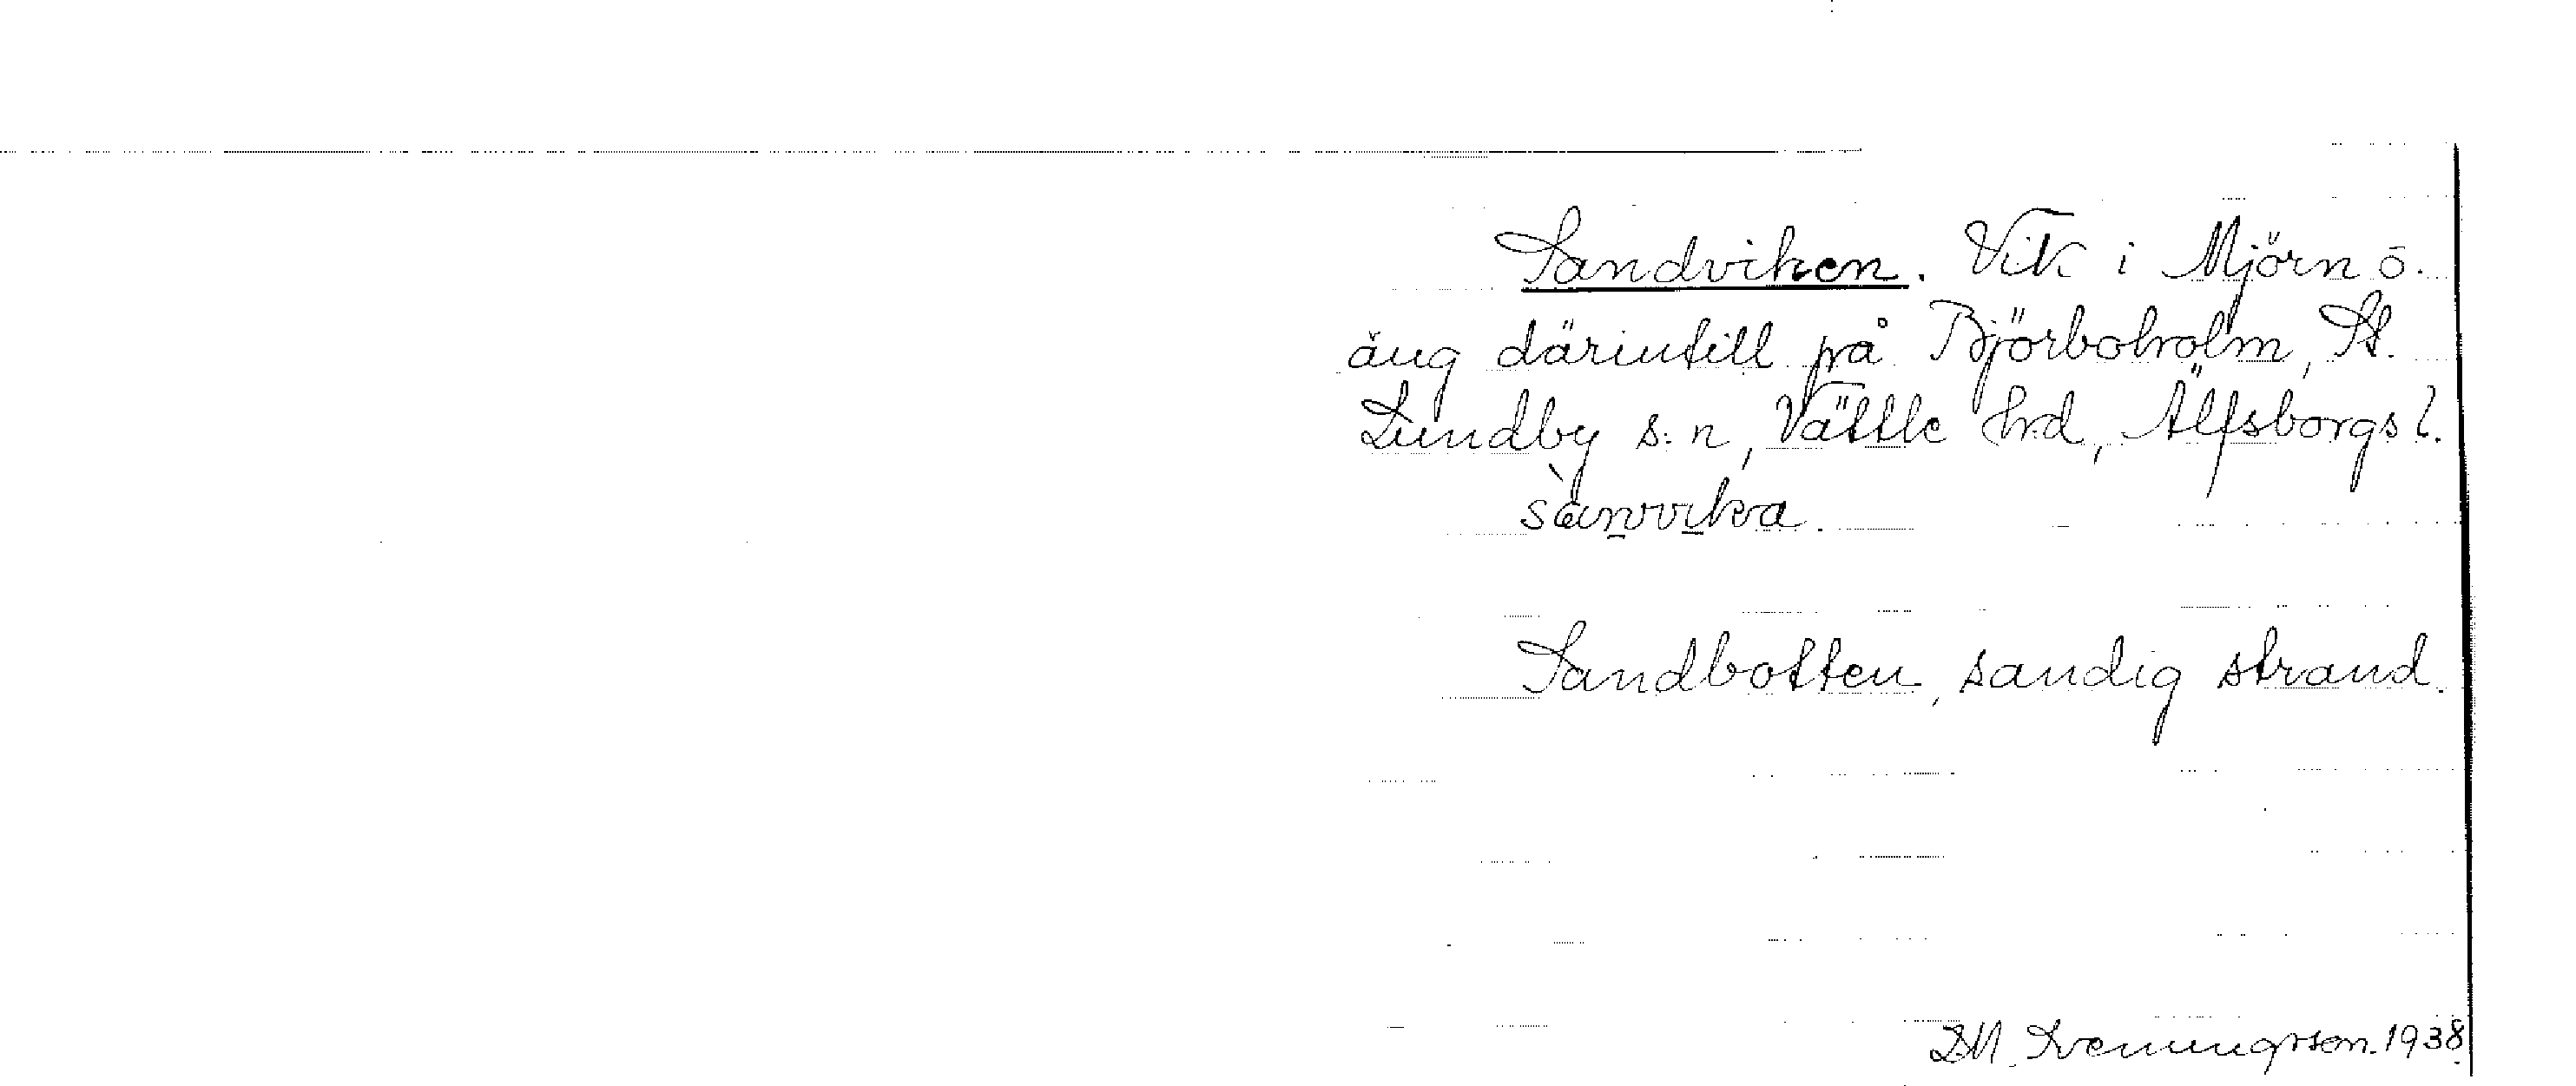 Sandviken. Vik i Mjörn o.
äng därintill på Björboholm, St.
Lundby s:n, Vättle hd, Älfsborgs l.
sànvvika.
Sandbotten, sandig strand.
D.M. Svenungsson. 1938